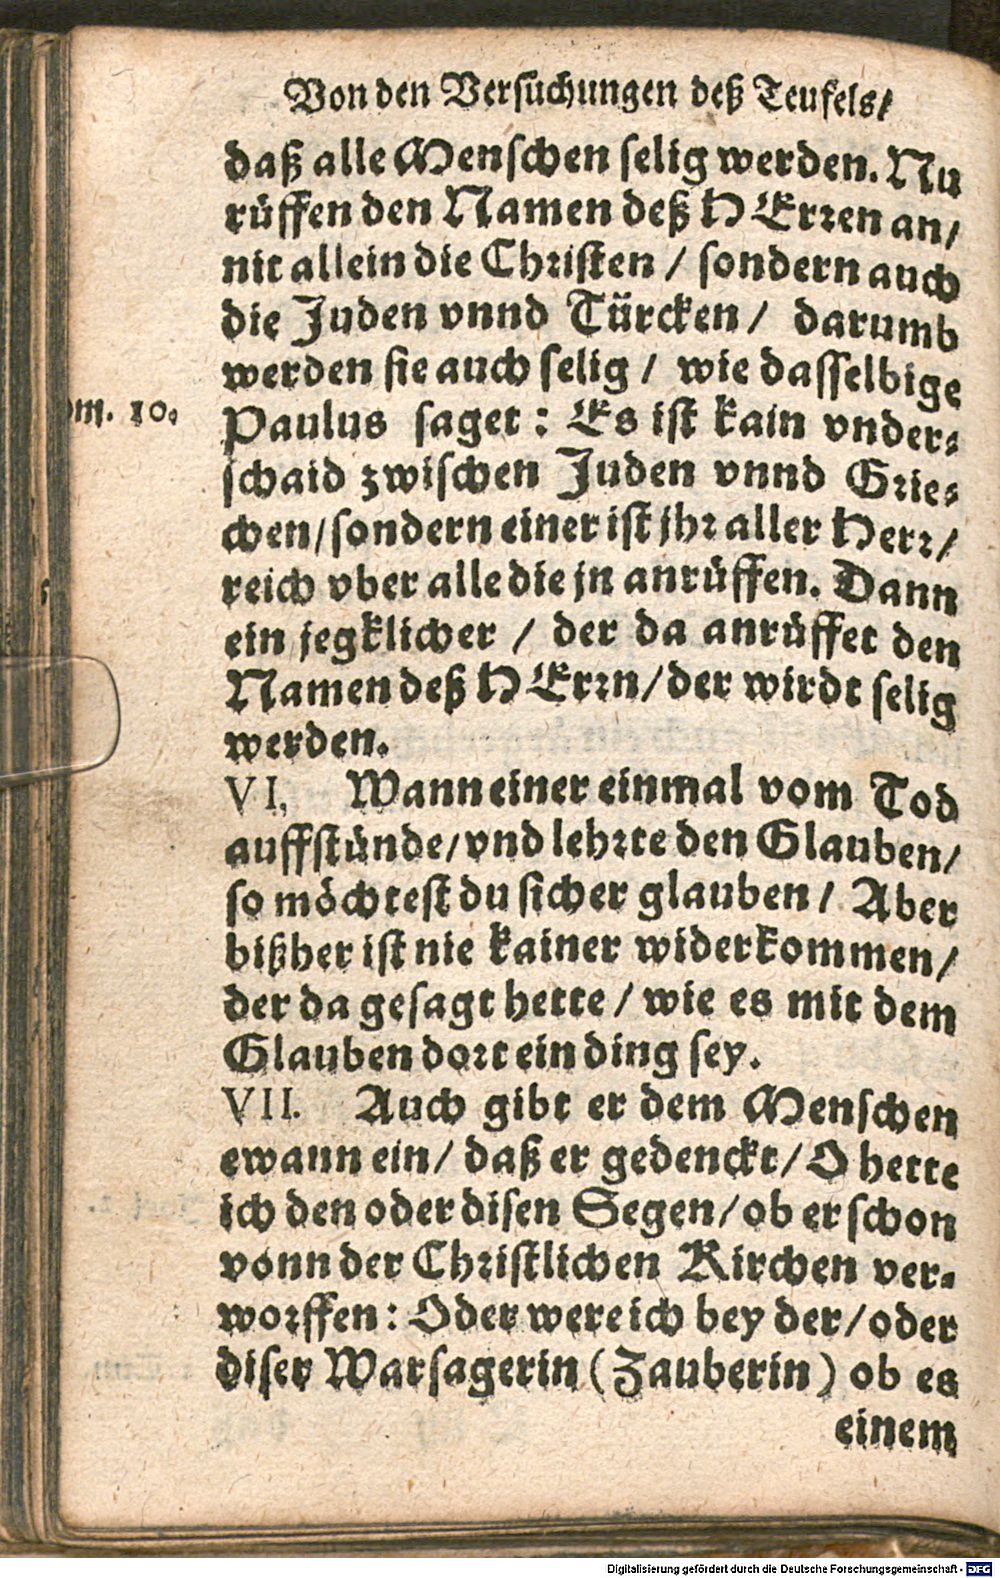 Von den Versuchungen deß Teufels/
daß alle Menschen selig werden. Nu
rüffen den Namen deß HErren an/
nit allein die Christen / sondern auch
die Juden vnnd Türcken / darumb
werden sie auch selig / wie dasselbige
om. 10.
Paulus saget : Es ist kain vnder-
schaid zwischen Juden vnnd Grie-
chen/sondern einer ist jhr aller Herr/
reich vber alle die jn anrüffen. Dann
ein jegklicher / der da anrüffet den
Namen deß HErrn/der wirdt selig
werden.
VI. Wann einer einmal vom Tod
auffstünde/vnd lehrte den Glauben/
so möchtest du sicher glauben / Aber
bißher ist nie kainer widerkommen/
der da gesagt hette / wie es mit dem
Glauben dort ein ding sey.
VII. Auch gibt er dem Menschen
ewann ein/ daß er gedenckt/ O hette
ich den oder disen Segen/ob er schon
vonn der Christlichen Kirchen ver-
worffen: Oder were ich bey der/oder
diser Warsagerin (Zauberin) ob es
einem
Digitalisierung gefördert durch die Deutsche Forschungsgemeinschaft - DFG